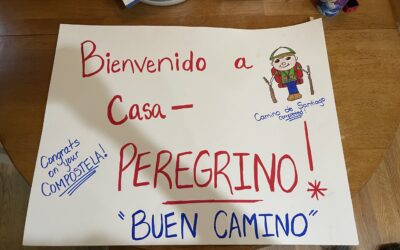 Bienvenido a
Casa -
PEREGRINO!*
"BUEN CAMINO"
Congrats
on your
COMPOSTELA!
Camino de Santiago
Completed!